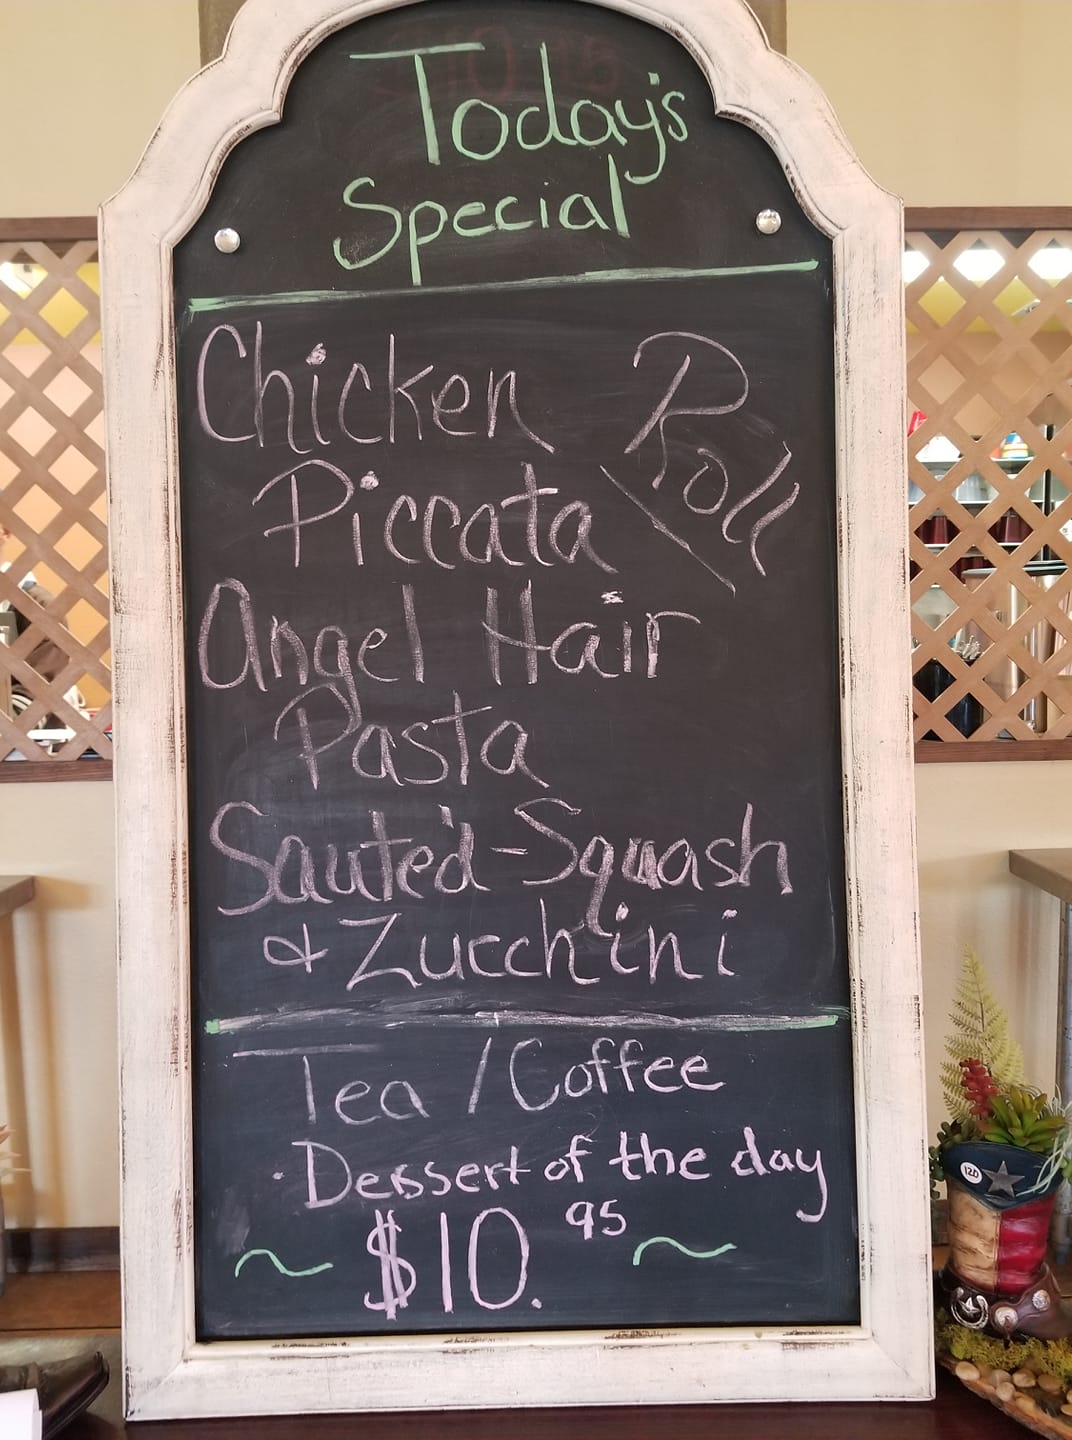 Today's
Special
Chicken
Piccata
Roll
Angel Hair
Pasta
Sauted-Squash
& Zucchini
Tea / Coffee
· Dessert of the day
~ $10.95 ~
120